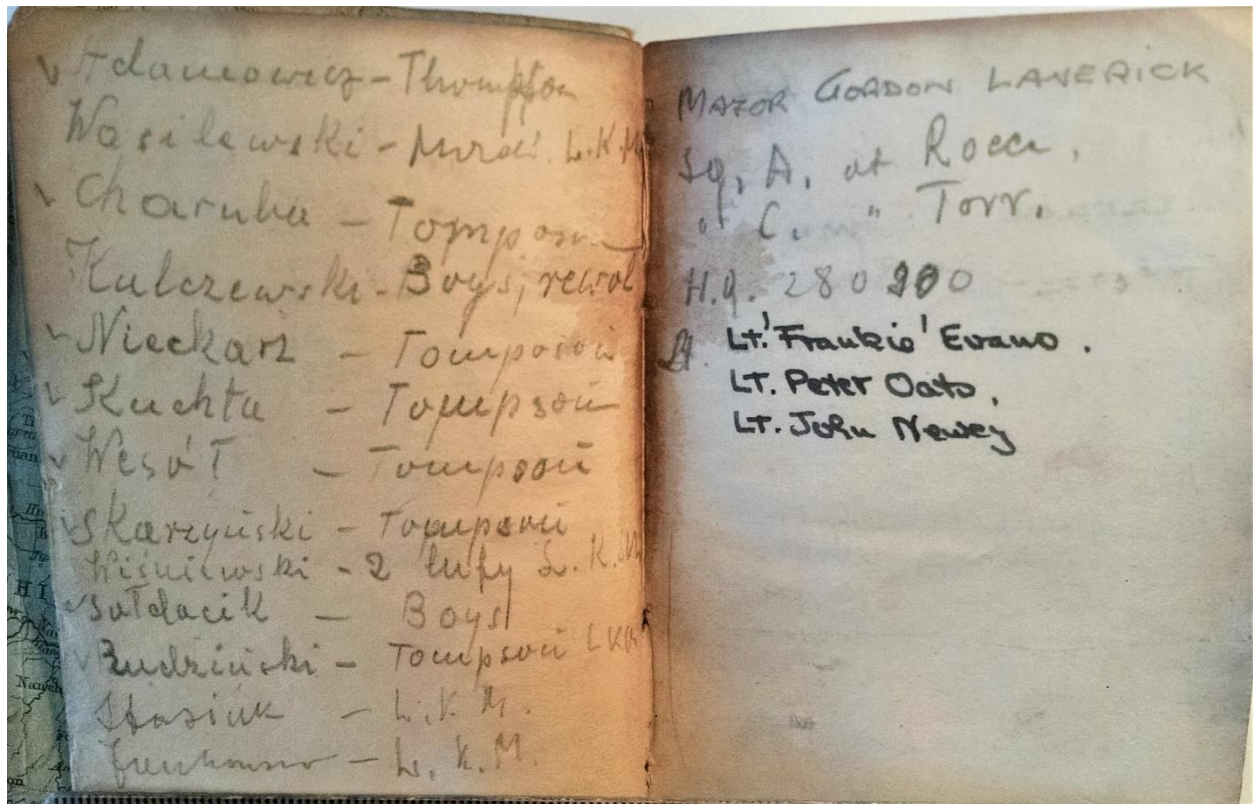 Adamowicz - Thompson
Wasilewski - L.K.M
Charuba - Tompson
Kulczewski - Boys, rewol
Nieckarz - Tompson
Kuchta - Tompson
Wesół - Tompson
Skarzyński - Tompson
Wiśniewski - 2 lufy L.K.M
Sołdacik - Boys
Rudziński - Tompson LKM
Stasiuk - L.K.M.
- L.K.M.
MAJOR GORDON LAVERICK
Sq. A. at Rocca,
" C. " Torr.
H.q. 280
Lt. Lt. 'Frankie' Evans.
Lt. Peter Oats,
Lt. John Newey